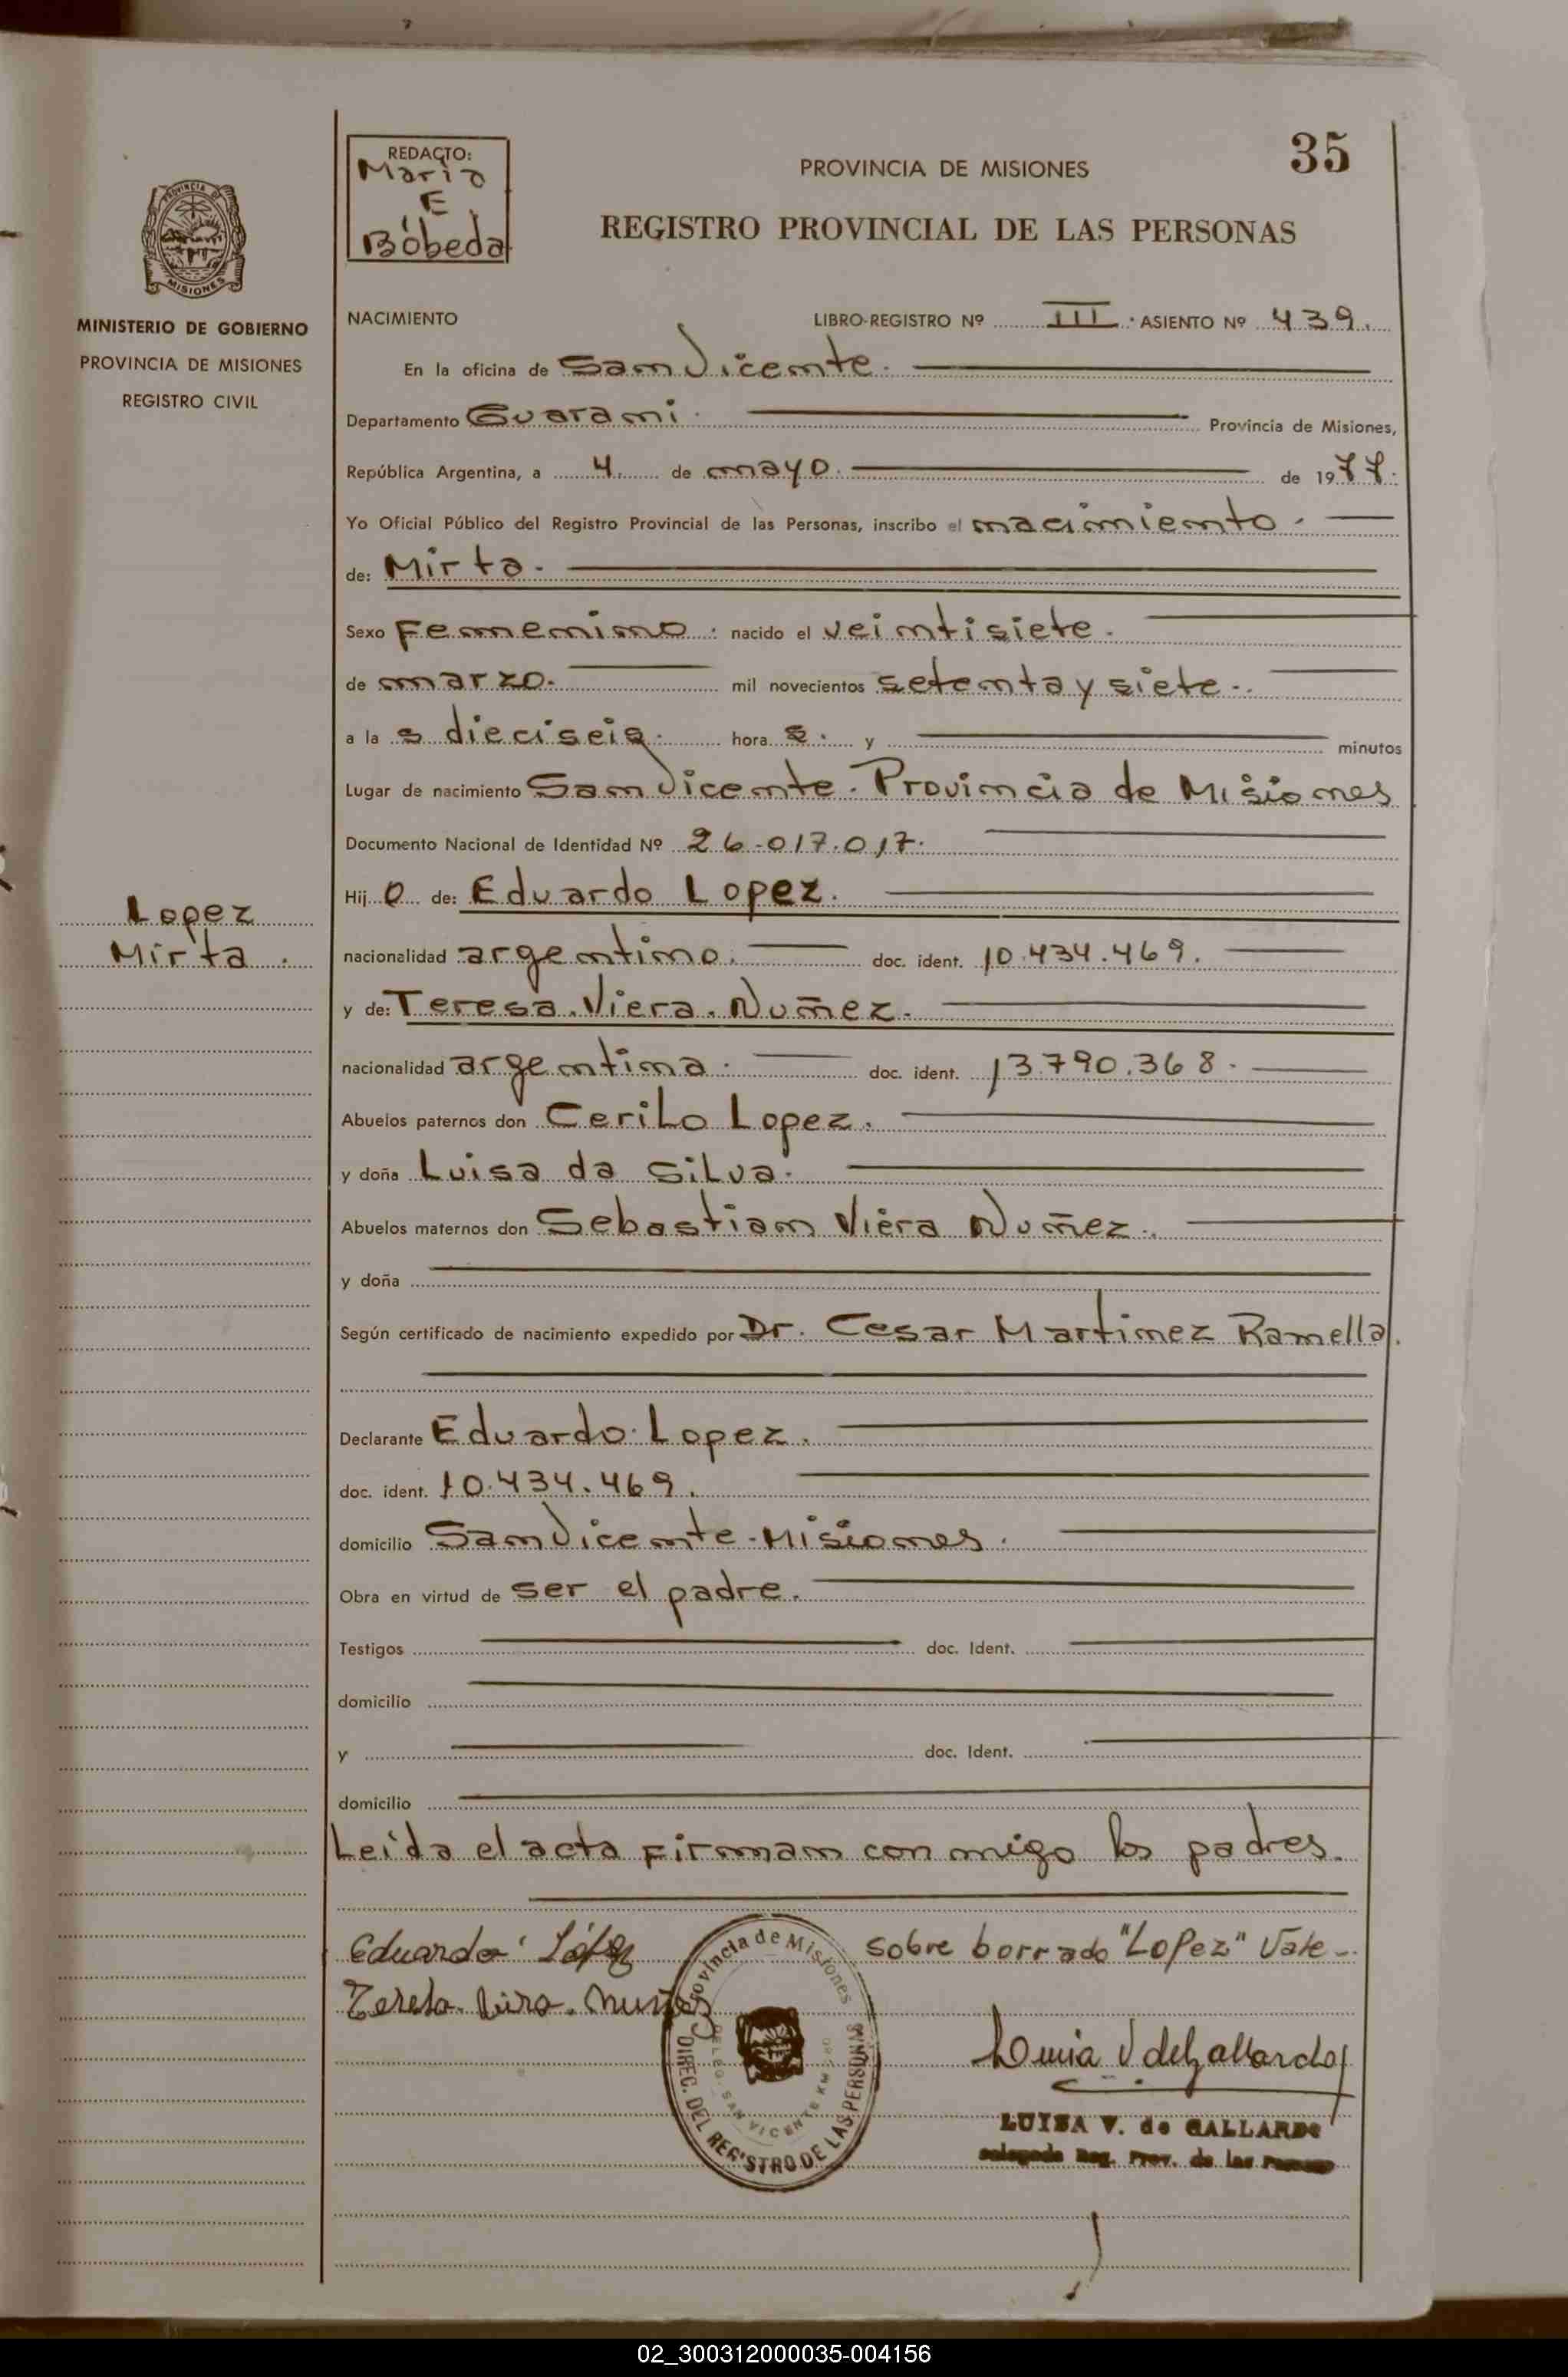 35
REDACTO:
Maria
E.
Bóbeda
PROVINCIA DE MISIONES
REGISTRO PROVINCIAL DE LAS PERSONAS
PROVINCIA DE
MISIONES
MINISTERIO DE GOBIERNO
PROVINCIA DE MISIONES
REGISTRO CIVIL
NACIMIENTO LIBRO-REGISTRO Nº III. ASIENTO Nº 439.
En la oficina de San Vicente.
Departamento Guarani. Provincia de Misiones,
República Argentina, a 4. de mayo. de 1977.
Yo Oficial Público del Registro Provincial de las Personas, inscribo el nacimiento.
de: Mirta.
Sexo Femenino. nacido el veintisiete.
de marzo. mil novecientos setenta y siete.
a la s dieciseis. hora s. y minutos
Lugar de nacimiento San Vicente. Provincia de Misiones
Documento Nacional de Identidad Nº 26.017.017.
Hij o de: Eduardo Lopez.
nacionalidad argentino. doc. ident. 10.434.469.
y de: Teresa. Viera. Nuñez.
nacionalidad argentina. doc. ident. 13.790.368.
Abuelos paternos don Cerilo Lopez.
y doña Luisa da Silva.
Abuelos maternos don Sebastian Viera Nuñez.
y doña
Según certificado de nacimiento expedido por Dr. Cesar Martinez Ramella.
Declarante Eduardo Lopez.
doc. ident. 10.434.469.
domicilio San Vicente-Misiones.
Obra en virtud de ser el padre.
Testigos doc. Ident.
domicilio
y doc. Ident.
domicilio
Leida el acta firman con migo los padres.
Lopez
Mirta.
Eduardo López sobre borrado "Lopez" Vale.
Teresa. Viera. Nuñes
Provincia de Misiones
DELEG. SAN VICENTE KM
DIREC. DEL REGISTRO DE LAS PERSONAS
Luisa V de Gallardo
LUISA V. de GALLARDO
Delegada Reg. Prov. de las Personas
02_300312000035-004156